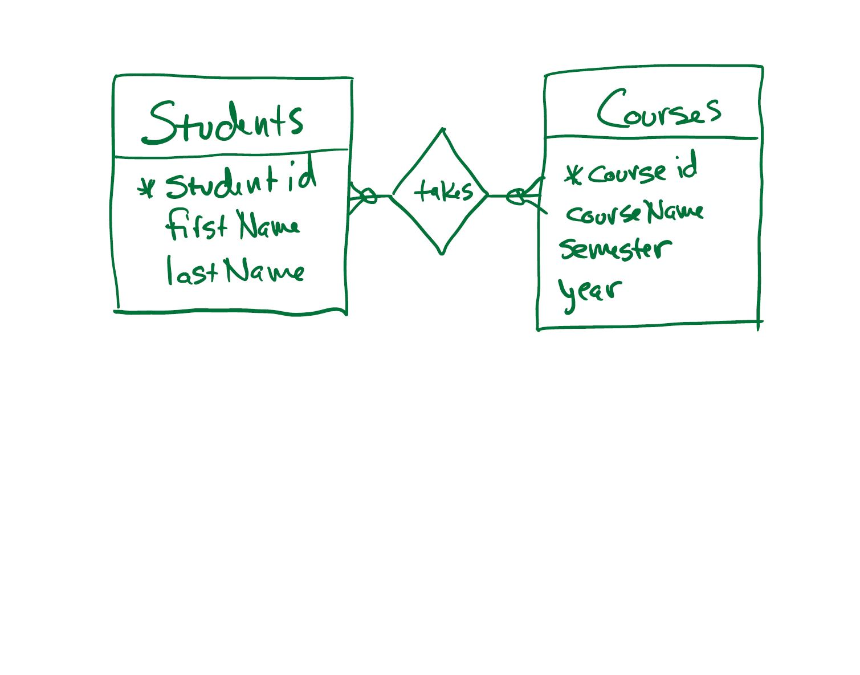 Students
* Student id
first Name
last Name
takes
Courses
* Course id
course Name
semester
year